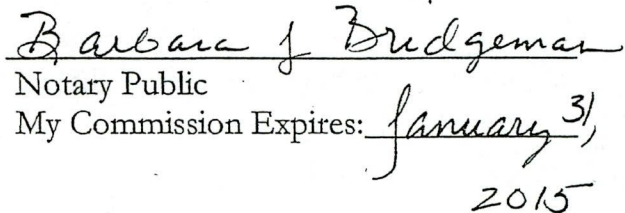 Barbara J Bridgeman
Notary Public
My Commission Expires: January 31,
2015